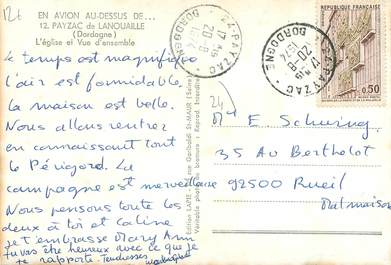 126
EN AVION AU-DESSUS DE...
12. PAYZAC de LANOUAILLE
(Dordogne)
L'église et Vue d'ensemble
Le temps est magnifique
l'air est formidable,
la maison est belle.
Nous allons rentrer
en connaissant tout
le Périgord. La
campagne est merveilleuse
Nous pensons toute les
deux à toi et Caline
je t'embrasse Mary Ann
tu vas être heureux avec ce que je
te rapporte. Tendresses
Edition LAPIE - rue Garibaldi St-MAUR (Seine)
Véritable photo au bromure - Reprod. Interdite
24-PAYZAC
17 H
20-8
DORDOGNE
24-PAYZAC
17 H
20-8
DORDOGNE
REPUBLIQUE FRANÇAISE
0,50
POSTES
24
E Schuring
35 Au Berthelot
92500 Rueil
Malmaison